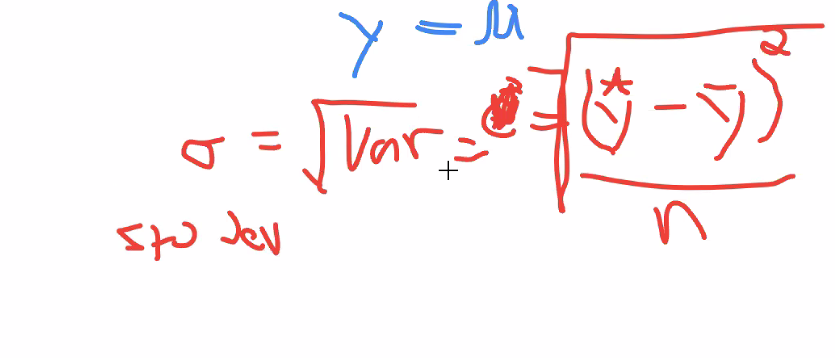 y = μ
σ = √Var = = √(y* - ȳ)² / n
std dev